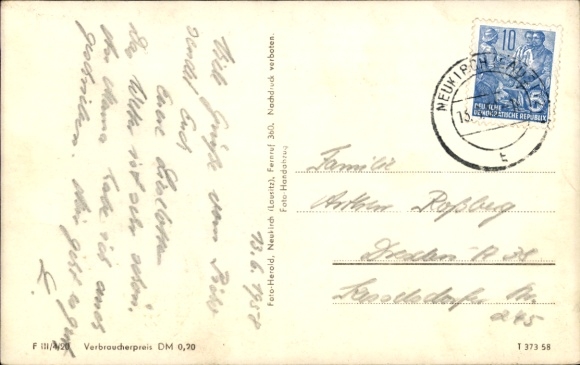 Viele Grüße vom Bieleboh
sendet Euch
Eure Liselotte.
Das Wetter ist sehr schön.
An Mama habe ich auch
geschrieben. Mir geht es gut
L.
13. 6. 1958
Foto-Herold, Neukirch (Lausitz), Fernruf 360. Nachdruck verboten.
Foto-Handabzug
10
DEUTSCHE
DEMOKRATISCHE REPUBLIK
NEUKIRCH
13.
t
Familie
Arthur Roßberg
Dresden A 38
Kesselsdorfer Str.
245
F III/4/20 Verbraucherpreis DM 0,20
T 373 58